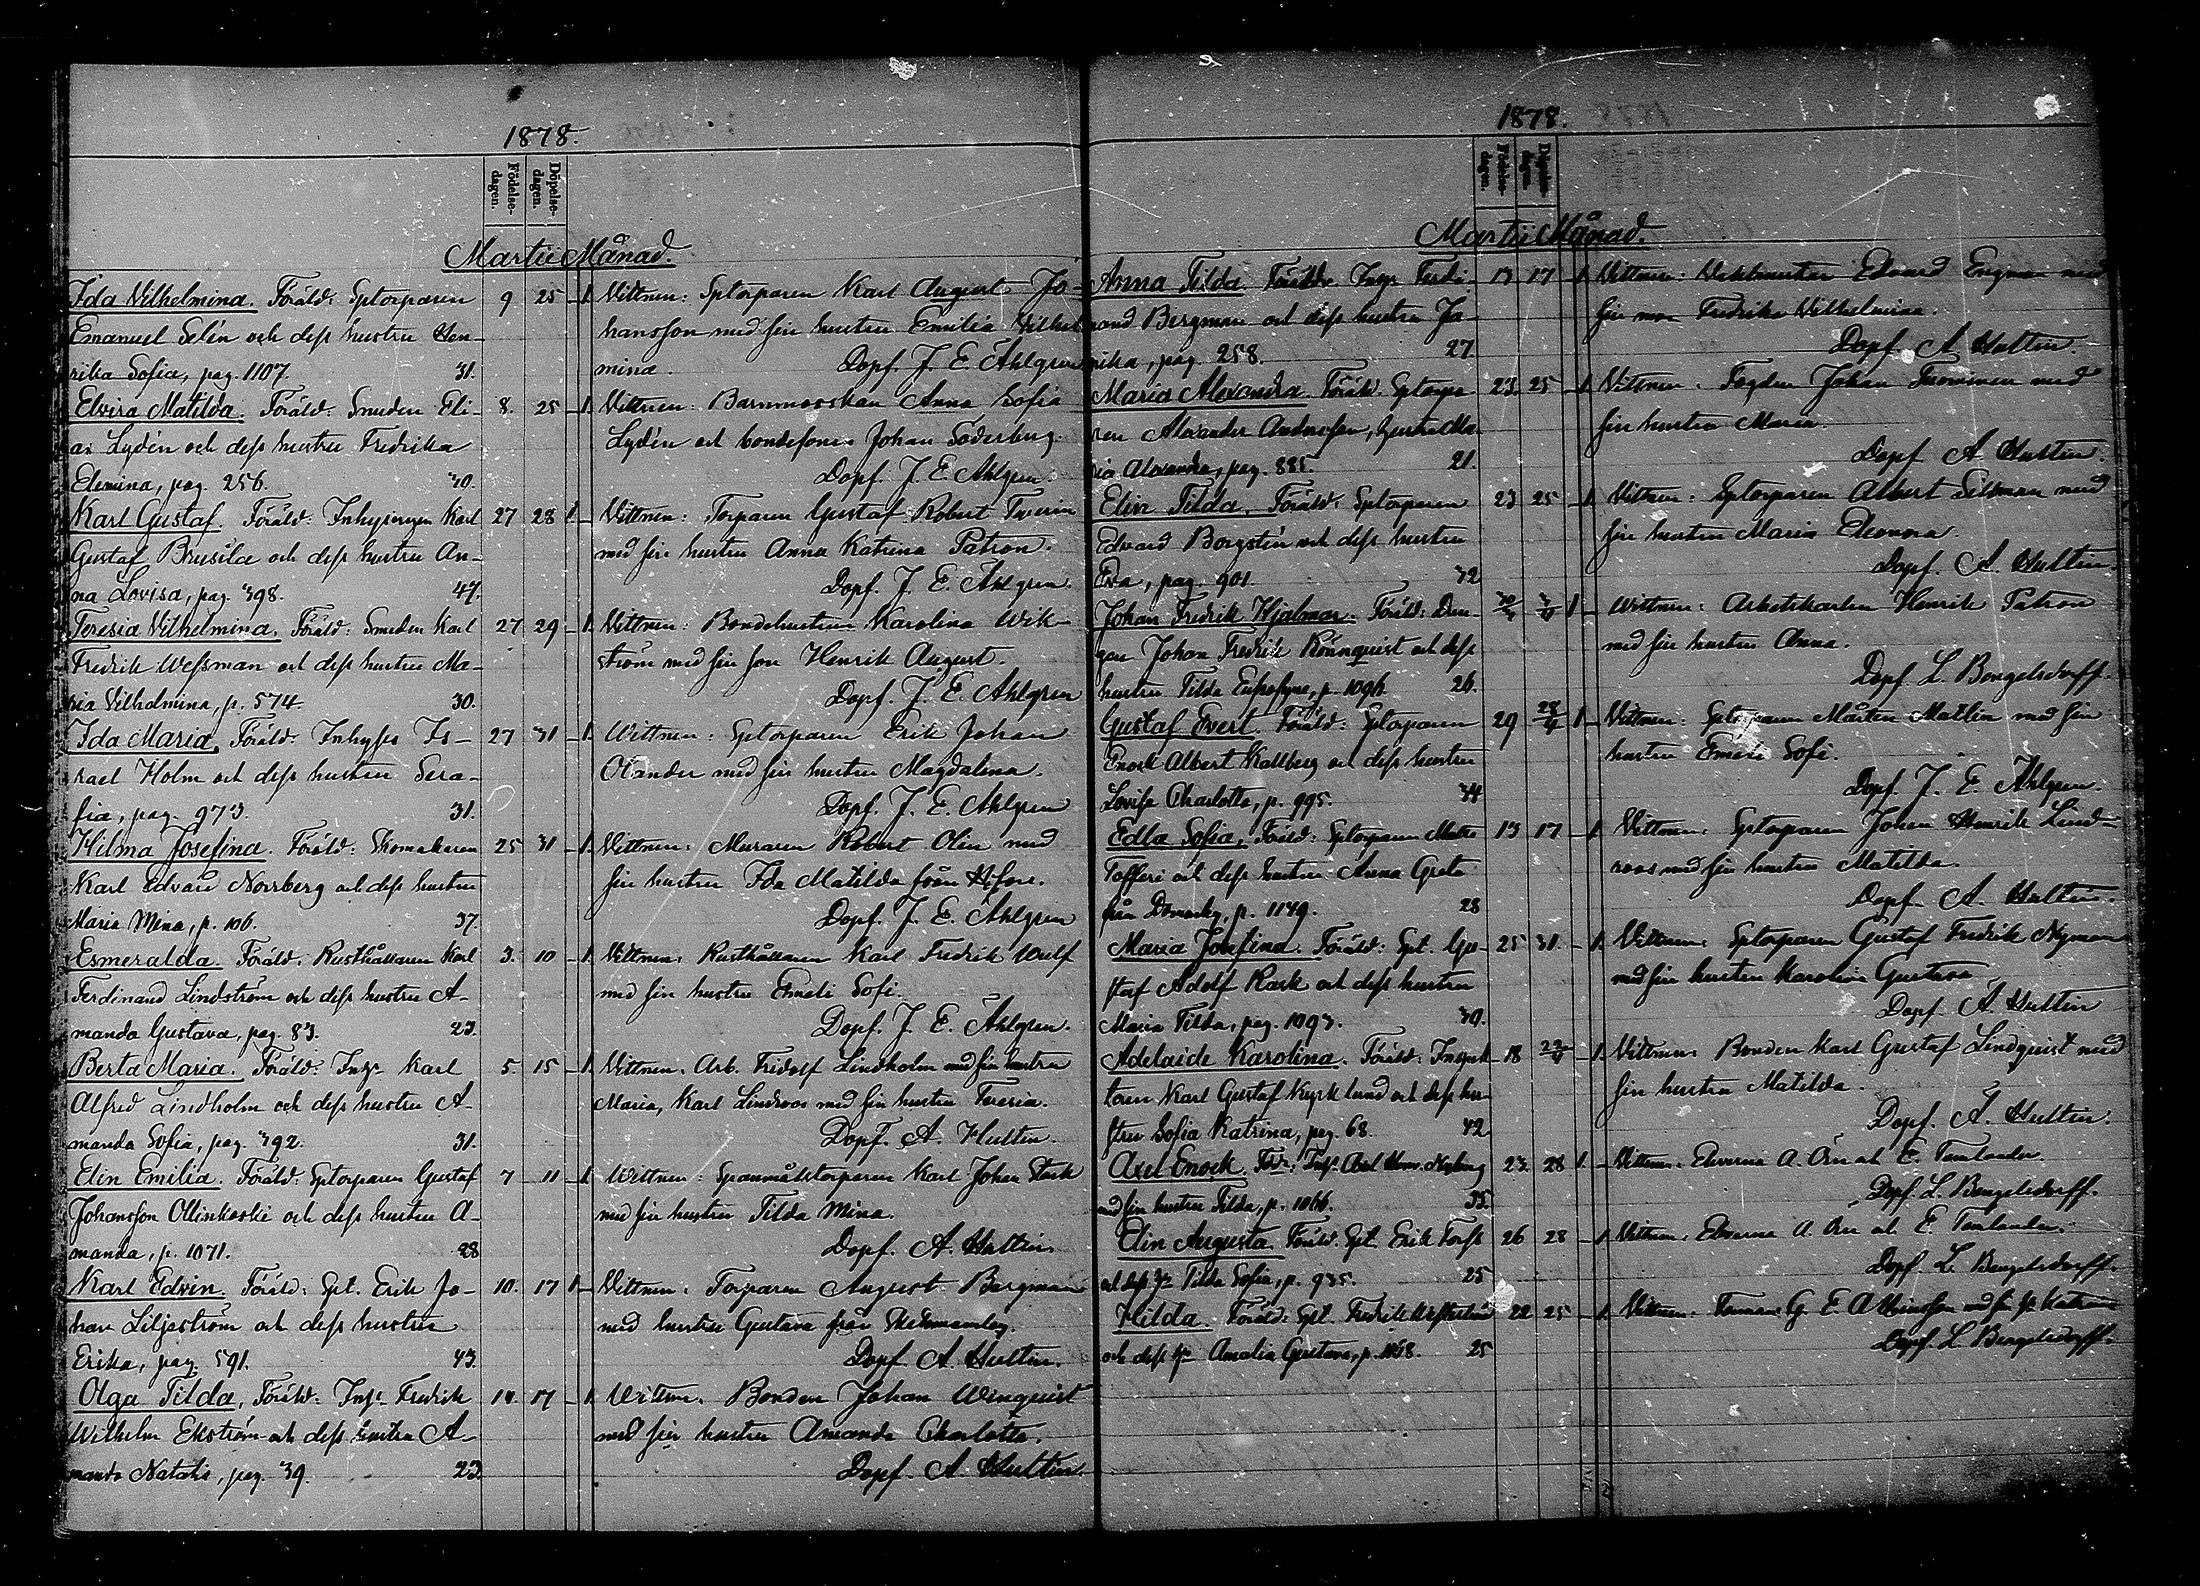 1878.
Födelse-
dagen.
Döpelse-
dagen.
Martii Månad.
Ida Vilhelmina. Föräld: Sptorparen 9 25 – 1. Vittnen: Sptorparen Karl August Jo-
Emanuel Selén och dess hustru Hen- hansson med sin hustru Emilia Vilhel
rika Sofia, pag. 1107. 31. mina. Dopf. J. E. Ahlgren
Elvira Matilda. Föräld. Smeden Eli- 8. 25 – 1. Vittnen: Barnmorskan Anna Sofia
as Lydén och dess hustru Fredrika Lydén och bondesonen Johan Söderberg.
Elemina, pag. 256. 30. Dopf. J. E. Ahlgren.
Karl Gustaf. Föräld: Inhysingen Karl 27 28 1 – Vittnen: Torparen Gustaf Robert
Gustaf Brusila och dess hustru An- med sin hustru Anna Katrina Patron.
na Lovisa, pag. 398. 47. Dopf. J. E. Ahlgren.
Teresia Vilhelmina. Föräld: Smeden Karl 27 29 – 1. Vittnen: Bondehustrun Karolina Wik-
Fredrik Wessman och dess hustru Ma- ström med sin son Henrik August.
ria Vilhelmina, p. 574. 30. Dopf. J. E. Ahlgren
Ida Maria. Föräld: Inhyses Is- 27 31 – 1. Wittnen: Sptorparen Erik Johan
rael Holm och dess hustru Sera- Olander med sin hustru Magdalena.
fia, pag. 973. 31. Dopf. J. E. Ahlgren
Hilma Josefina. Föräld: Skomakaren 25 31 – 1. Vittnen: Muraren Robert Olin med
Karl Edvard Norrberg och dess hustru sin hustru Ida Matilda från H:fors.
Maria Mina, p. 106. 37. Dopf. J. E. Ahlgren
Esmeralda. Föräld: Rusthållaren Karl 3. 10 – 1. Vittnen: Rusthållaren Karl Fredrik Wulf
Ferdinand Lindström och dess hustru A- med sin hustru Emeli Sofi.
manda Gustava, pag. 83. 23. Dopf. J. E. Ahlgren.
Berta Maria. Föräld: Inhs Karl 5. 15 – 1. Vittnen. Arb. Fridolf Lindholm med sin hustru
Alfred Lindholm och dess hustru A- Maria, Karl Lindroos med sin hustru Teresia.
manda Sofia, pag. 392. 31. Dopf. A. Hultin.
Elin Emilia. Föräld: Sptorparen Gustaf 7 11 – 1. Wittnen: Spanmålstorparen Karl Johan Stark
Johansson Ollinkoski och dess hustru A- med sin hustru Tilda Mina.
manda, p. 1071. 28 Dopf. A. Hultin
Karl Edvin. Föräld: Spt. Erik Jo- 10. 17 1 – Vittnen: Torparen August Bergman
han Liljeström och dess hustru med hustru Gustava från
Erika, pag. 591. 43. Dopf. A. Hultin.
Olga Tilda, Föräld: Inhs Fredrik 10. 17 – 1. Vittnen. Bonden Johan Winquist
Wilhelm Ekström och dess hustru A- med sin hustru Amanda Charlotta.
manda Natalia, pag. 39. 23. Dopf. A. Hultin.
1878.
Födelse-
dagen.
Döpelse-
dagen.
Martii Månad.
Anna Tilda. Föräldr. Inhs Ferdi- 13 17 – 1. Vittnen: Edvard Engman med
nand Bergman och dess hustru Ja- sin mor Fredrika Vilhelmina.
rika, pag. 258. 27. Dopf. A. Hultin.
Maria Alexandra. Föräld: Sptorpa- 23. 25 – 1. Vittnen: Fogden Johan Tuominen med
ren Alexander Andersson, hustru Ma- sin hustru Maria.
ria Alexandra, pag. 885. 21. Dopf. A. Hultin.
Elin Tilda. Föräld: Sptorparen 23 25 – 1. Vittnen: Sptorparen Albert Seldman med
Edvard Borgstén och dess hustru sin hustru Maria Eleonora.
Eva, pag. 901. 32 Dopf. A. Hultin.
Johan Fredrik Hjalmar. Föräld: Dren- 1 – Wittnen: Arbetskarlen Henrik Patron
gen Johan Fredrik Rönnquist och dess med sin hustru Anna.
hustru Tilda Eufrosyne, p. 1096. 26. Dopf. L. Bengelsdorff.
Gustaf Evert. Föräld: Sptorparen 29 28/4 1 – Vittnen: Sptorparen Mårten Mattlin med sin
Enock Albert Kallberg och dess hustru hustru Emeli Sofi.
Lovisa Charlotta, p. 995. 34 Dopf. J. E. Ahlgren.
Edla Sofia. Föräld: Sptorparen Matts 13 17 – 1. Vittnen: Sptorparen Johan Henrik Lind-
Tofferi och dess hustru Anna Greta roos med sin hustru Matilda
från Domarby, p. 1149. 28 Dopf. A. Hultin.
Maria Josefina. Föräld: Spt. Gu- 25 31. – 1. Vittnen: Sptorparen Gustaf Fredrik Nyman
staf Adolf Rask och dess hustru med sin hustru Karolina Gustava
Maria Tilda, pag. 1093. 30. Dopf. A. Hultin
Adelaide Karolina. Föräld: Inspek- 18 22/4 – 1. Vittnen: Bonden Karl Gustaf Lindquist med
toren Karl Gustaf Kyrklund och dess hu- sin hustru Matilda.
stru Sofia Katrina, pag. 68. 42 Dopf. A. Hultin.
Axel Enock. För: Inhs Axel Nyberg 23. 28 1. – Vittnen: Eleverna A. Örn och E. Tamlander.
med sin hustru Tilda, p. 1066. 35. Dopf. L. Bengelsdorff.
Elin Augusta. Föräld. Spt. Erik Forss 26 28 – 1. Vittnen: Eleverna A. Örn och E. Tamlander.
och dess hu Tilda Sofia, p. 935. 25 Dopf. L. Bengelsdorff.
Hilda. Föräld: Spt. Fredrik 22 25 – 1. Vittnen: G. E. Albinsson med sin hu Katrina
och dess hu Amalia Gustava, p. 1058. 25 Dopf. L. Bengelsdorff.